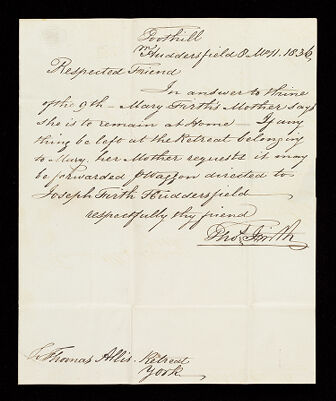 Toothill
Huddersfield 8 Mo 11. 1836,
Respected Friend
In answer to thine
of the 9th - Mary Firth's Mother says
she is to remain at Home - If any
thing be left at the Retreat belonging
to Mary, her Mother requests it may
be forwarded p Waggon directed to
Joseph Firth Huddersfield
respectfully thy friend
Thos Firth
Thomas Allis. Retreat
York